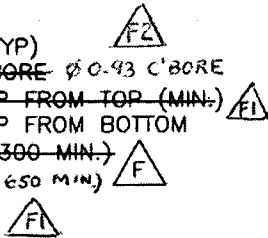 F2
YP)
BORE Ø 0.93 C'BORE
P FROM TOP (MIN.) F1
P FROM BOTTOM
300 MIN.)
650 MIN.) F
F1